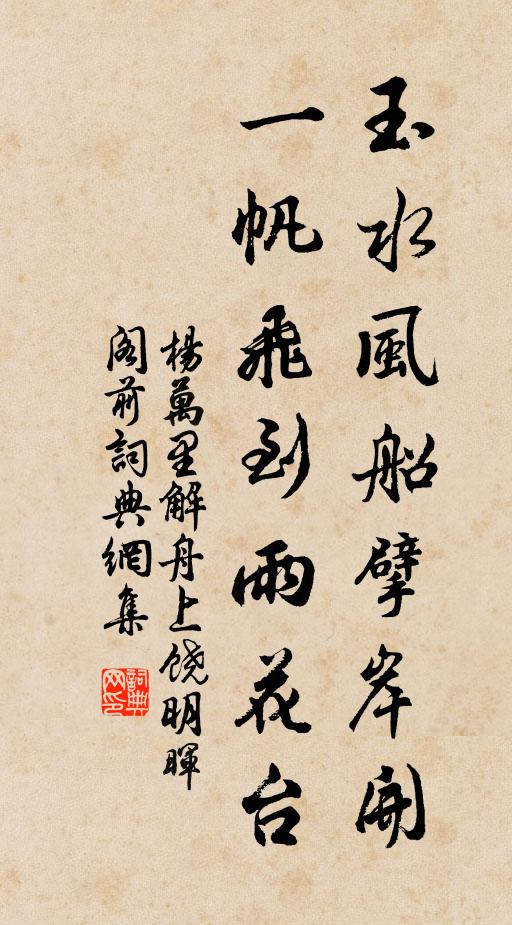 玉水風船擘岸開
一帆飛到雨花台
楊萬里解舟上饶明暉
阁前詞典網集
詞典
网印